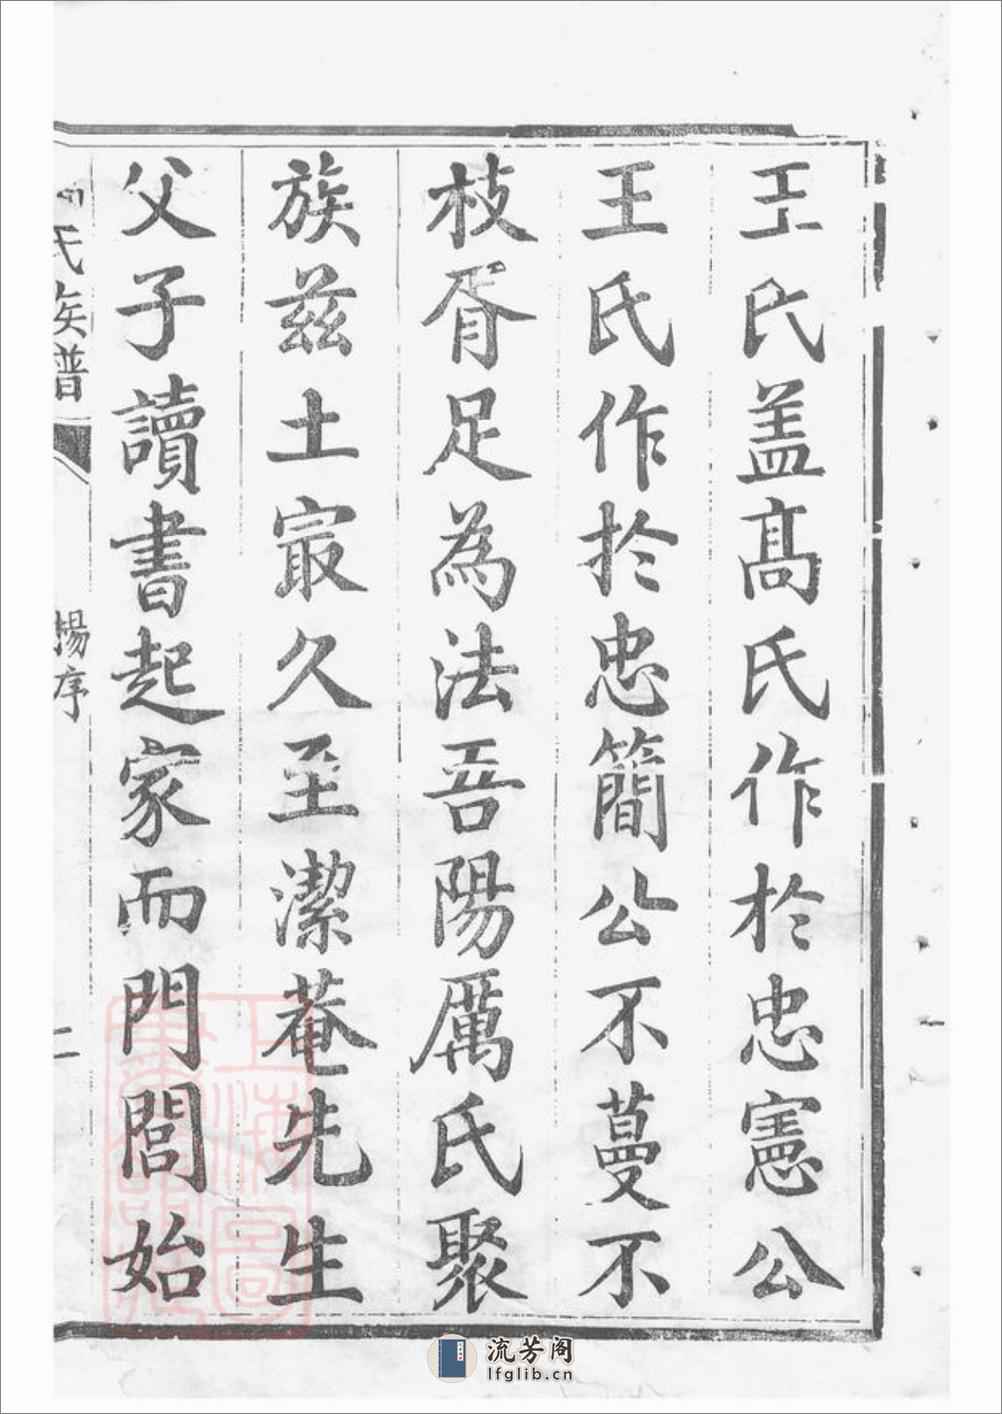 王氏盖髙氏作於忠憲公
王氏作於忠簡公不蔓不
枝胥足為法吾陽厲氏聚
族兹土冣久至潔菴先生
父子讀書起家而門閭始
氏族譜
楊序
二
流芳阁
lfglib.cn